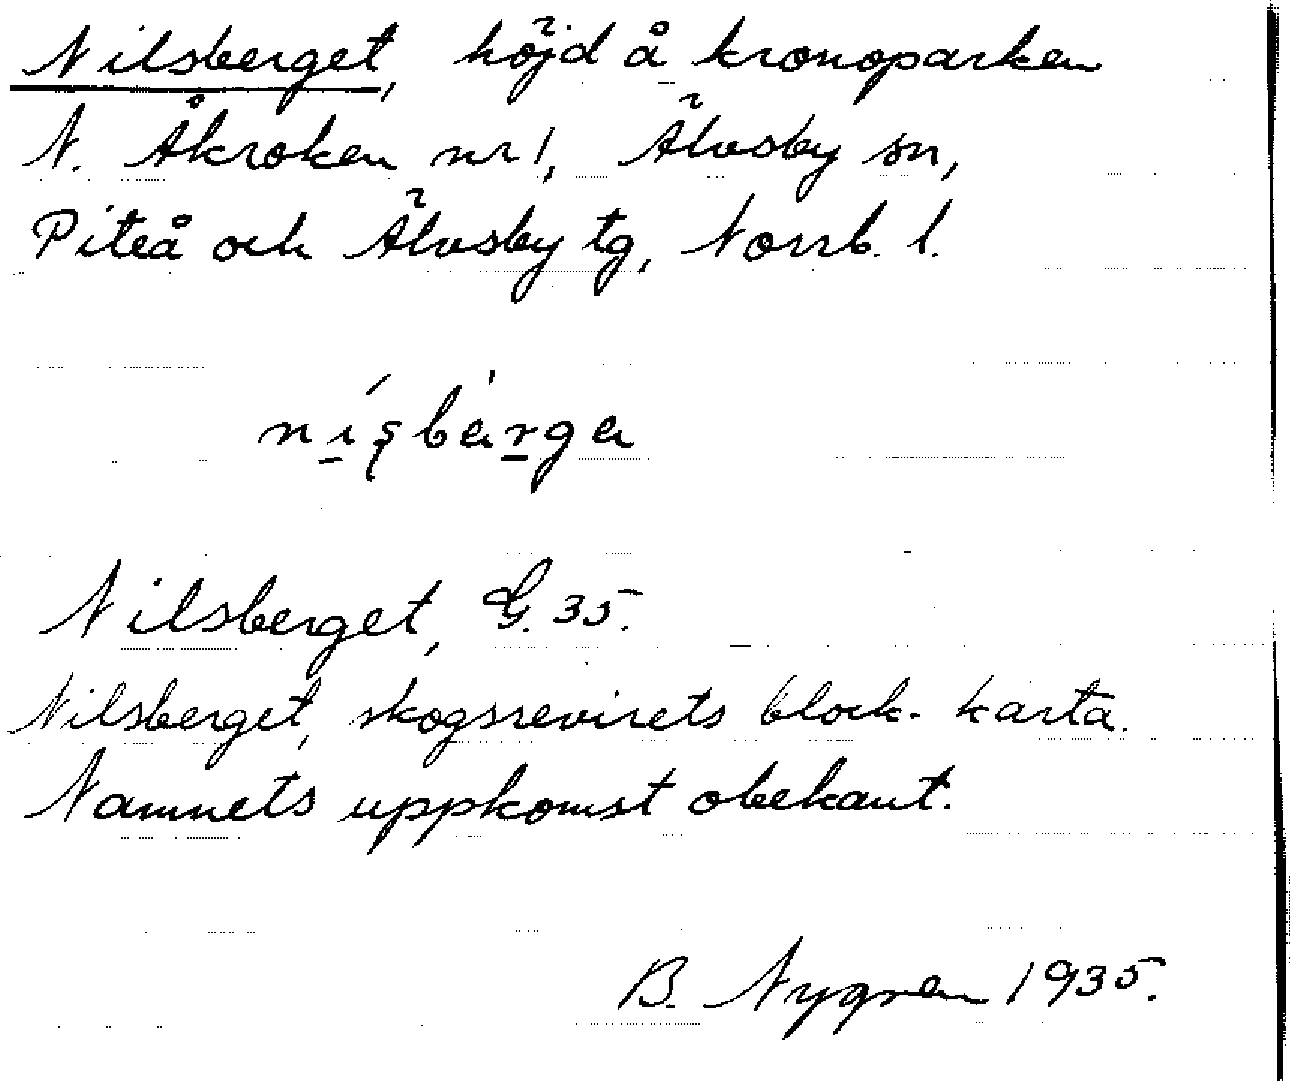 Nilsberget, höjd å kronoparken
N. Åkroken nr 1, Älvsby sn,
Piteå och Älvsby tg, Norrb. l.
Nilsberget, G. 35.
Nilsberget, skogsrevirets block-karta.
Namnets uppkomst obekant.
B. Nygren 1935.